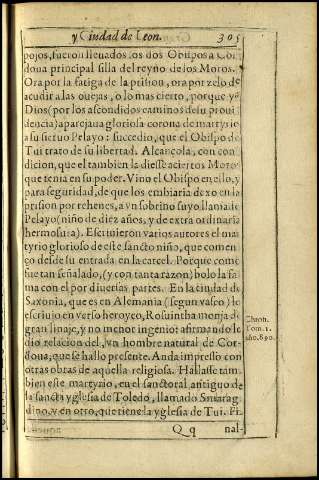 y Ciudad de Leon. 305
pojos, fueron lleuados los dos Obispos a Cor
doua principal silla del reyno de los Moros.
Ora por la fatiga de la prision, ora por zelo de
acudir a las ouejas, o lo mas cierto, porque ya
Dios (por los ascondidos caminos de su proui
dencia) aparejaua gloriosa corona de martyrio
a su sieruo Pelayo: succedio, que el Obispo de
Tui trato de su libertad. Alcançola, con con
dicion, que el tambien la diesse a ciertos Moros
que tenia en su poder. Vino el Obispo en ello, y
para seguridad, de que los embiaria dexo en la
prision por rehenes, a vn sobrino suyo llamado
Pelayo (niño de diez años, y de extraordinaria
hermosura). Escriuieron varios autores el mar
tyrio glorioso de este sancto niño, que comen
ço desde su entrada en la carcel. Porque como
fue tan señalado, (y con tanta razon) bolo la fa
ma con el por diuersas partes. En la ciudad de
Saxonia, que es en Alemania (segun vaseo) le
escriuio en verso heroyco, Rosuintha monja de
gran linaje, y no menor ingenio: afirmando le
dio relacion del, vn hombre natural de Cor-
doua, que se hallo presente. Anda impresso con
otras obras de aquella religiosa. Hallasse tam
bien este martyrio, en el sanctoral antiguo de
la sancta yglesia de Toledo, llamado Smarag-
dino, y en otro, que tiene la yglesia de Tui. Fi
Chron.
Tom. 1.
año. 890.
Qq nal-